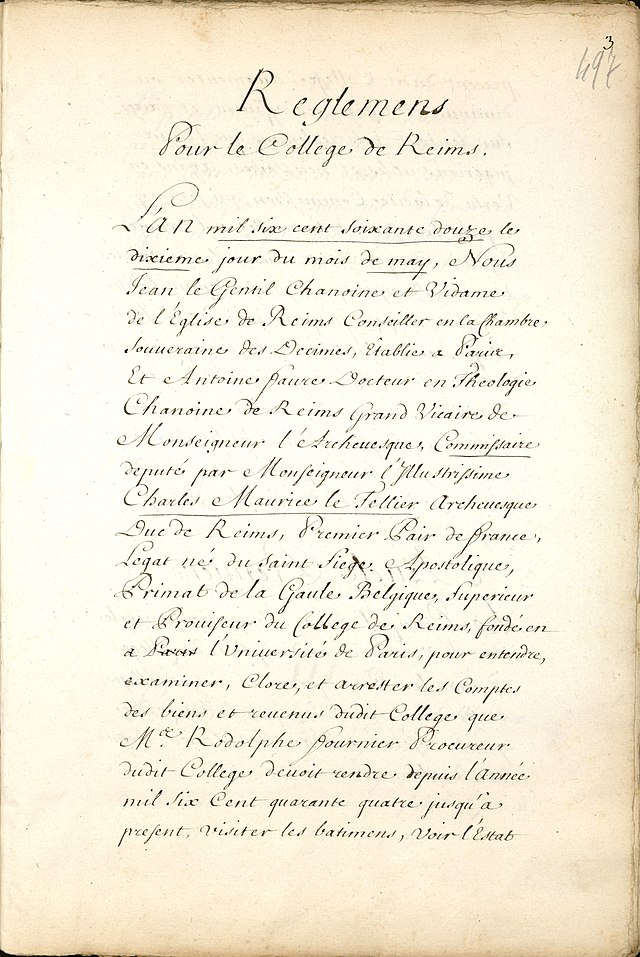 3
497
Reglemens
Pour le College de Reims.
L'an mil six cent soixante douze le
dixieme jour du mois de may, Nous
Jean le Gentil Chanoine et Vidame
de l'Église de Reims Conseiller en la Chambre
Souveraine des Decimes, Etablie a Paris,
Et Antoine faure Docteur en Theologie
Chanoine de Reims Grand Vicaire de
Monseigneur l'Archevesque, Commissaire
deputé par Monseigneur l'Illustrissime
Charles Maurice le Tellier Archevesque
Duc de Reims, Premier Pair de france,
Legat né du Saint Siege Apostolique,
Primat de la Gaule Belgique, Superieur
et Proviseur du College de Reims, fondé en
a Paris l'Université de Paris, pour entendre,
examiner, Clore, et arrester les Comptes
des biens et revenus dudit College que
Me. Rodolphe fournier Procureur
dudit College devoit rendre depuis l'année
mil six Cent quarante quatre jusqu'a
present, visiter les batimens, voir l'Estat